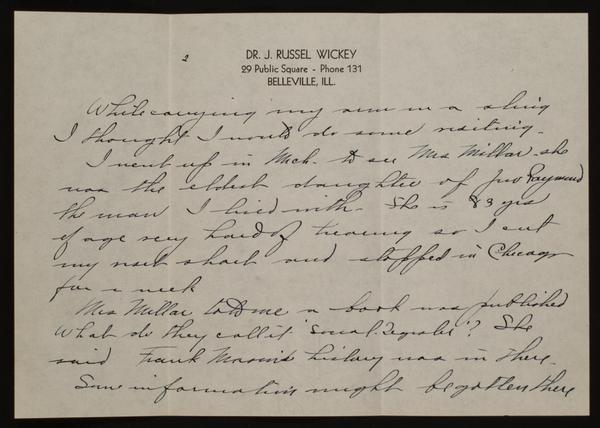 2
DR. J. RUSSEL WICKEY
29 Public Square - Phone 131
BELLEVILLE, ILL.
While carrying my arm in a sling
I thought I would do some visiting.
I went up in Mich. to see Mrs Millar. she
was the eldest daughter of Jno Raymond
the man I lived with. She is 83 yrs
of age very hard of hearing so I cut
my visit short and stopped in Chicago
for a week
Mrs Millar told me a book was published
What do they call it 'Social'? She
said Frank Mason's history was in there.
Some information might be gotten there